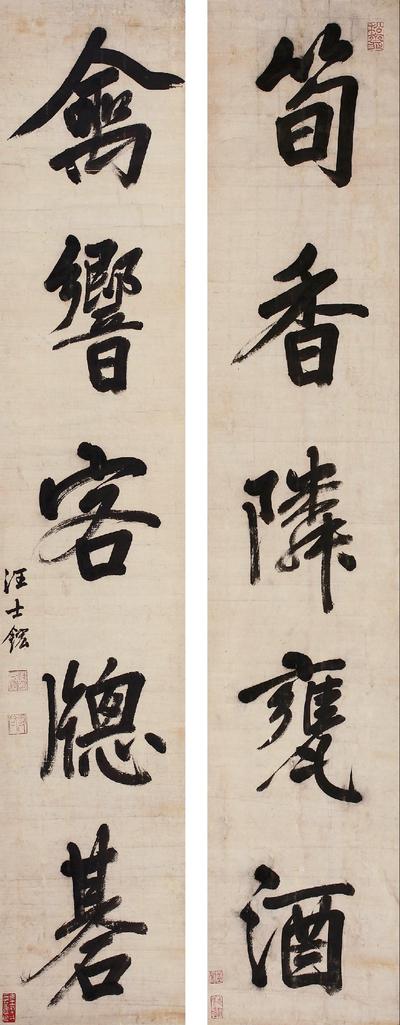 筍香隣甕酒
禽響客牕碁
汪士鋐